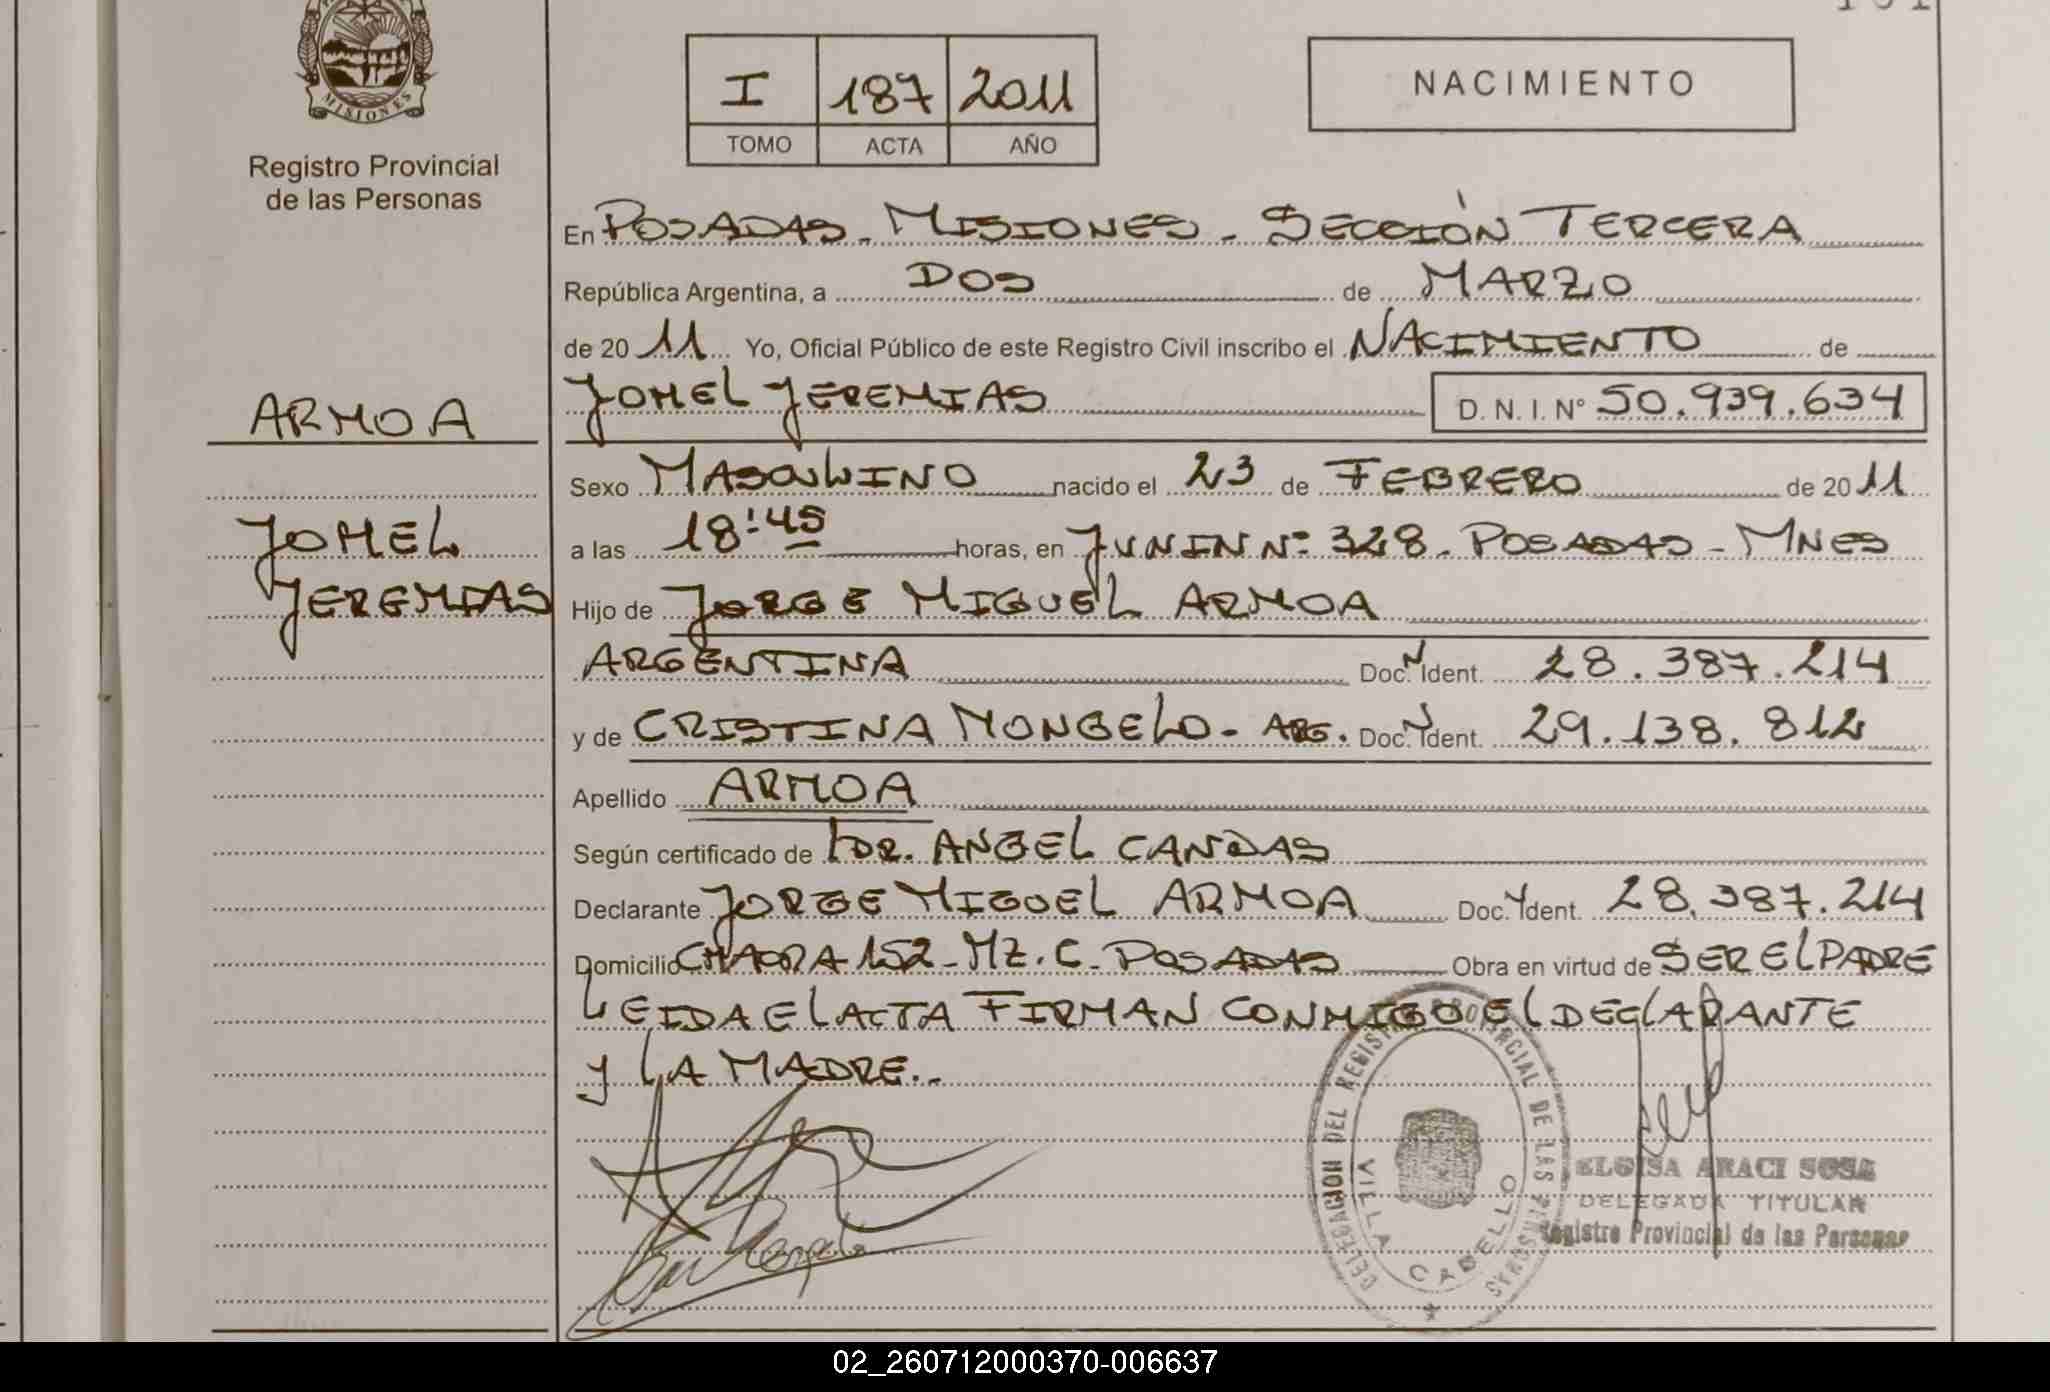 MISIONES
Registro Provincial
de las Personas
I 187 2011
TOMO ACTA AÑO
NACIMIENTO
En POSADAS - MISIONES - SECCIÓN TERCERA
República Argentina, a DOS de MARZO
de 2011 Yo, Oficial Público de este Registro Civil inscribo el NACIMIENTO de
JOMEL JEREMIAS D. N. I. N° 50.939.634
ARMOA
Sexo MASCULINO nacido el 23 de FEBRERO de 2011
JOMEL
a las 18:45 horas, en JUNIN N° 328. POSADAS - MNES
JEREMIAS
Hijo de JORGE MIGUEL ARMOA
ARGENTINA Doc. Ident. 28.387.214
y de CRISTINA MONGELO - ARG. Doc. Ident. 29.138.812
Apellido ARMOA
Según certificado de DR. ANGEL CANDAS
Declarante JORGE MIGUEL ARMOA Doc. Ident. 28.387.214
Domicilio CHACRA 152 - MZ. C - POSADAS Obra en virtud de SER EL PADRE
LEIDA EL ACTA FIRMAN CONMIGO EL DECLARANTE
Y LA MADRE..
DELEGACION DEL REGISTRO PROVINCIAL DE LAS PERSONAS
VILLA CABELLO
ELOISA ARACI SOSA
DELEGADA TITULAR
Registro Provincial de las Personas
02_260712000370-006637